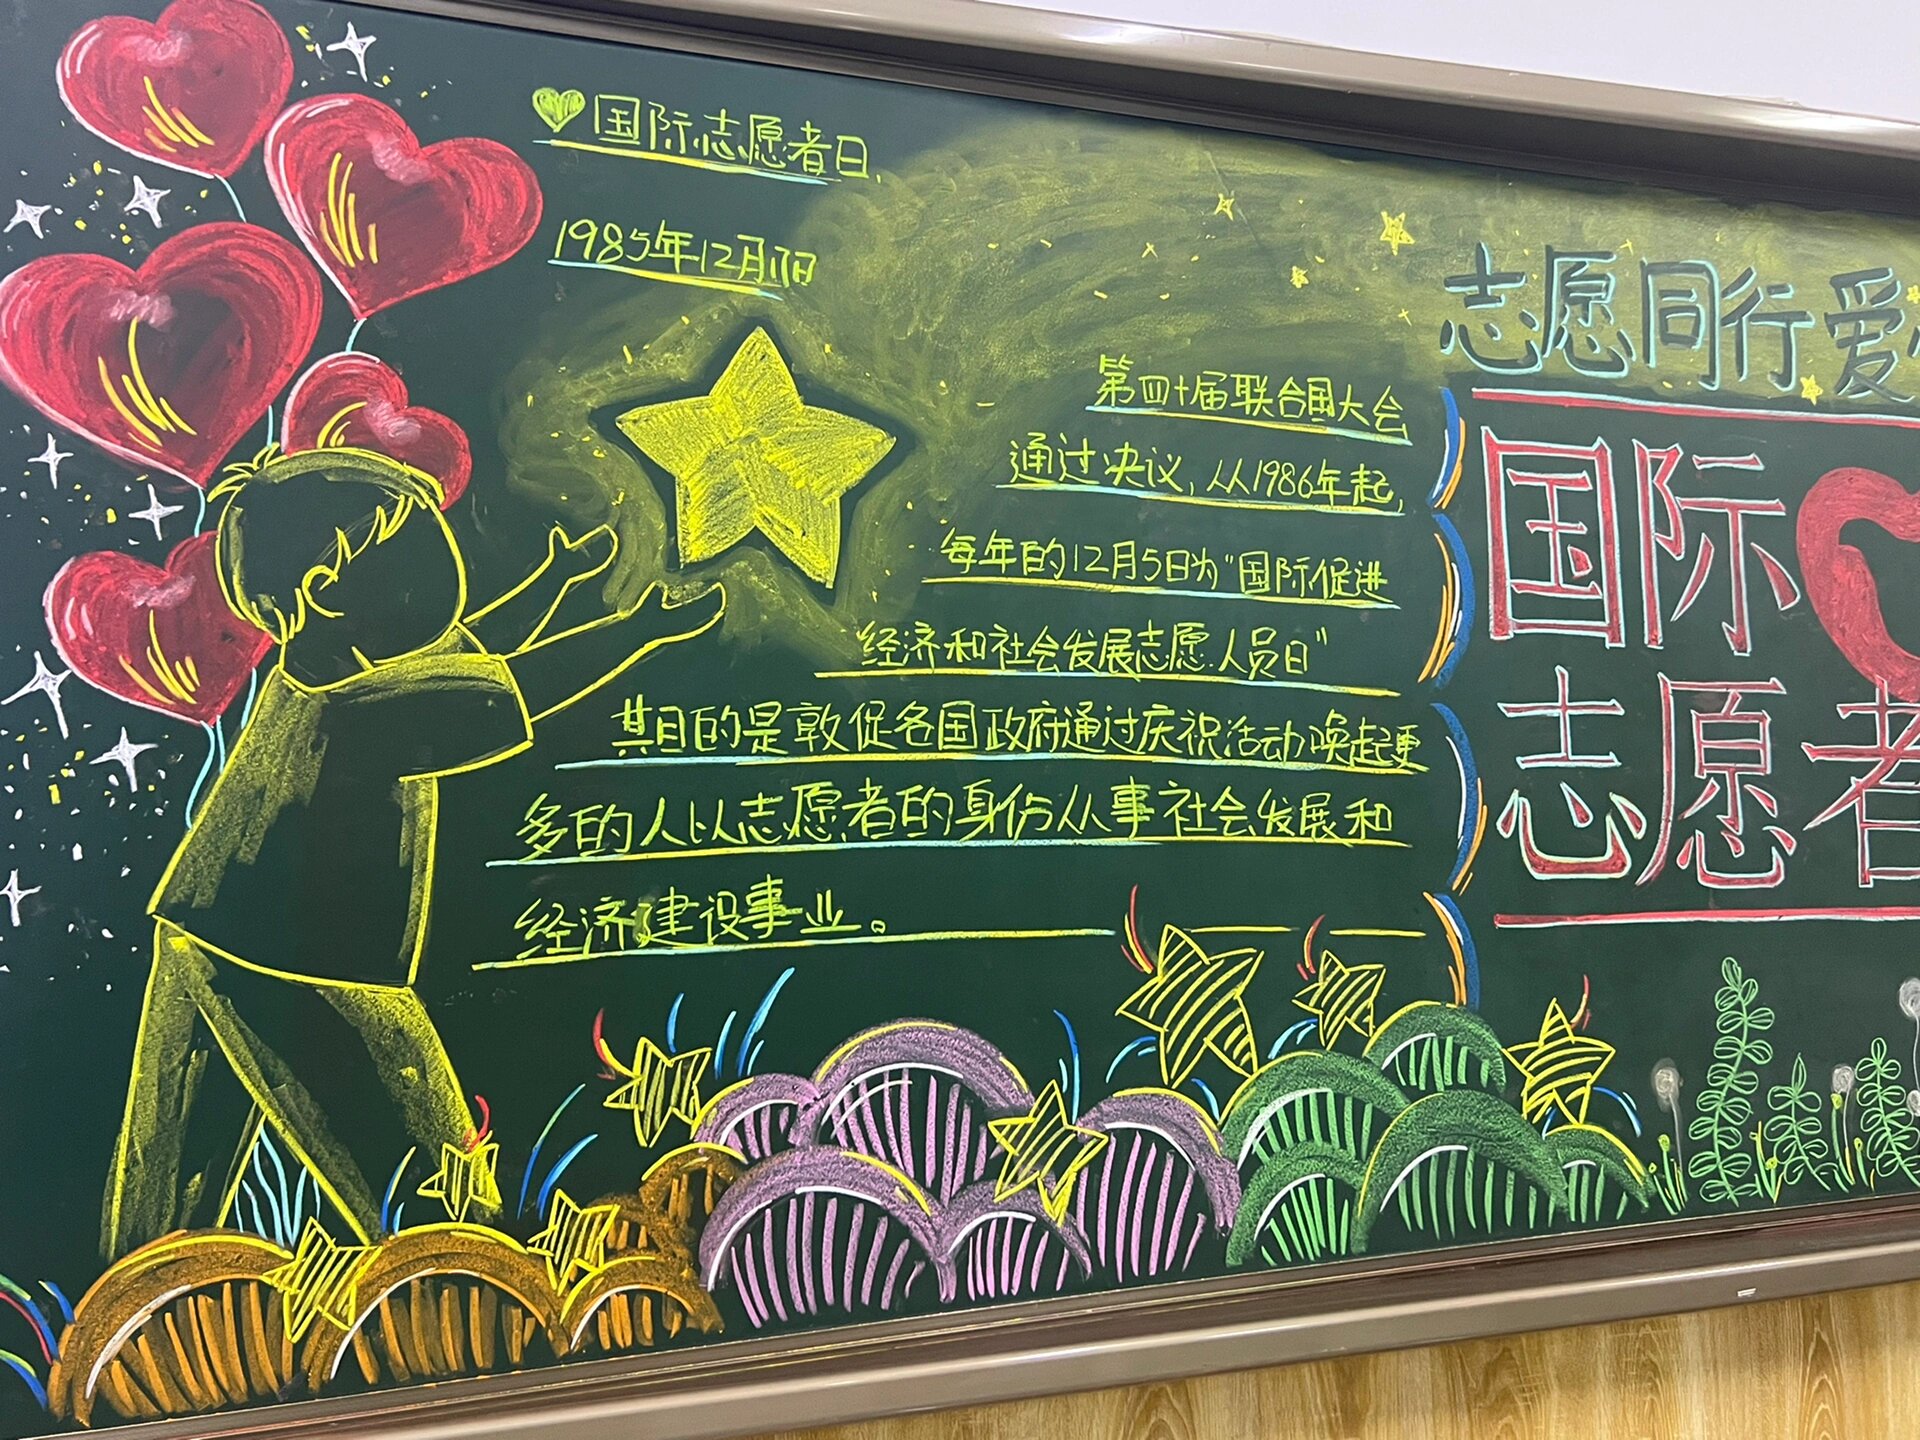 国际志愿者日
1985年12月17日
第四十届联合国大会
通过决议,从1986年起,
每年的12月5日为"国际促进
经济和社会发展志愿人员日"
其目的是敦促各国政府通过庆祝活动唤起更
多的人以志愿者的身份从事社会发展和
经济建设事业。
志愿同行 爱
国际
志愿者